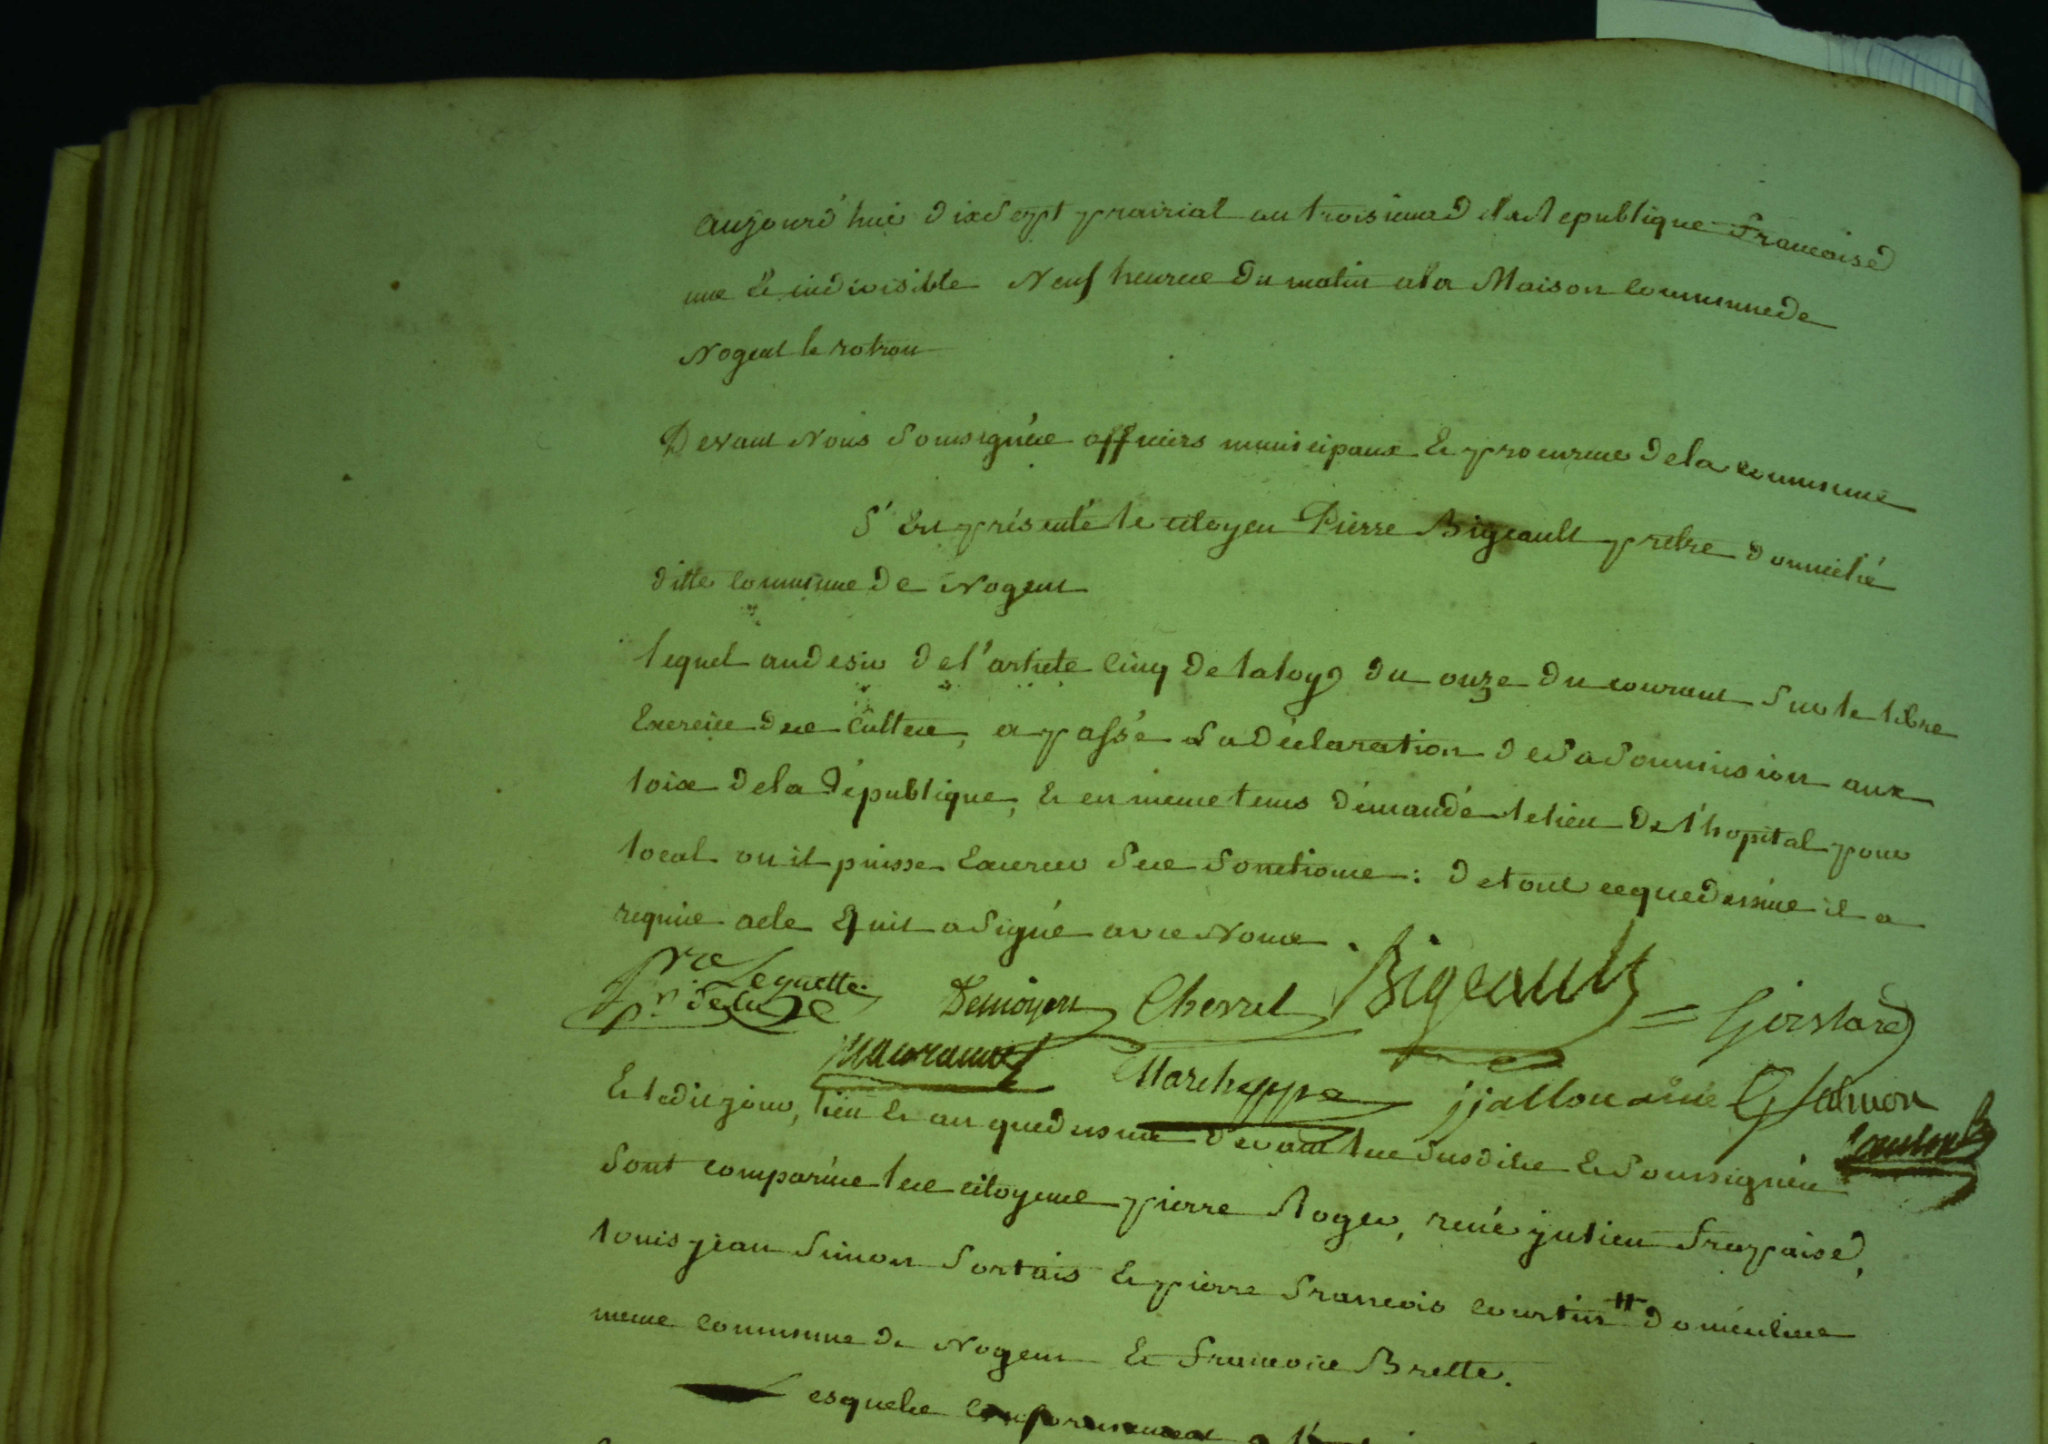 aujourd'hui dix Sept prairial an troisieme de la Republique francoise
une & indivisible Neuf heures du matin a la Maison commune de
Nogent le rotrou
Devant Nous Soussignés officiers municipaux & procureur de la commune
S'est présenté le citoyen Pierre Bigeault pretre domicilié
ditte commune de Nogent
lequel au desir de l'article cinq de la loy du onze du courant Sur le libre
Exercice des Cultes, a passé Sa déclaration de Sa Soumission aux
loix de la République, & en meme tems démandé le lieu de l'hopital pour
local ou il puisse Exercer Ses fonctions : de tout ce que dessus il a
requis acte & qu'il a Signé avec Nous .
Lequette Bigeault
Et le dit jour, lieu & an que dessus devant les Susdits & Soussignés
Sont comparus les citoyens pierre Roger, rené julien frapaise,
louis jean Simon Sortais & pierre francois courtin domiciliés
meme commune de Nogent & francois Brette.
esquels conformement a l'